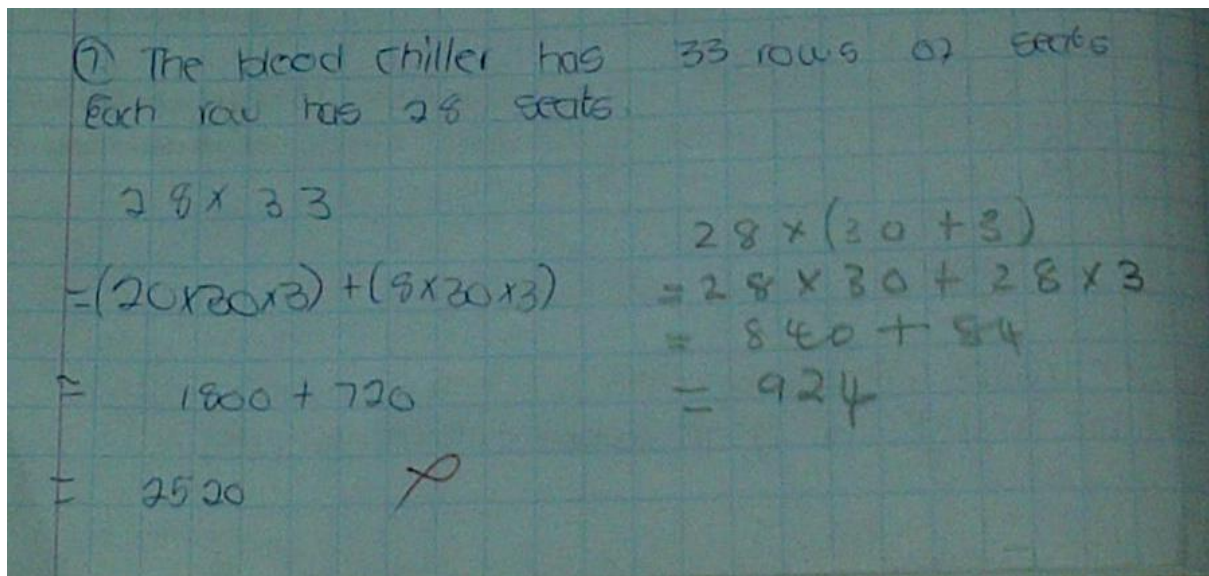 ⑦ The blood chiller has 33 rows of seats
Each row has 28 seats.
28 x 33
=(20x30x3) + (8x30x3)
= 1800 + 720
= 2520
28 x (30 + 3)
= 28 x 30 + 28 x 3
= 840 + 84
= 924